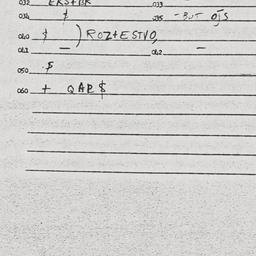 032 EKSTBR 033
034 $ 035 - BUT OJS
040 $ ) ROZTESTVO,
041 — 042 —
050 $
060 + QABE $